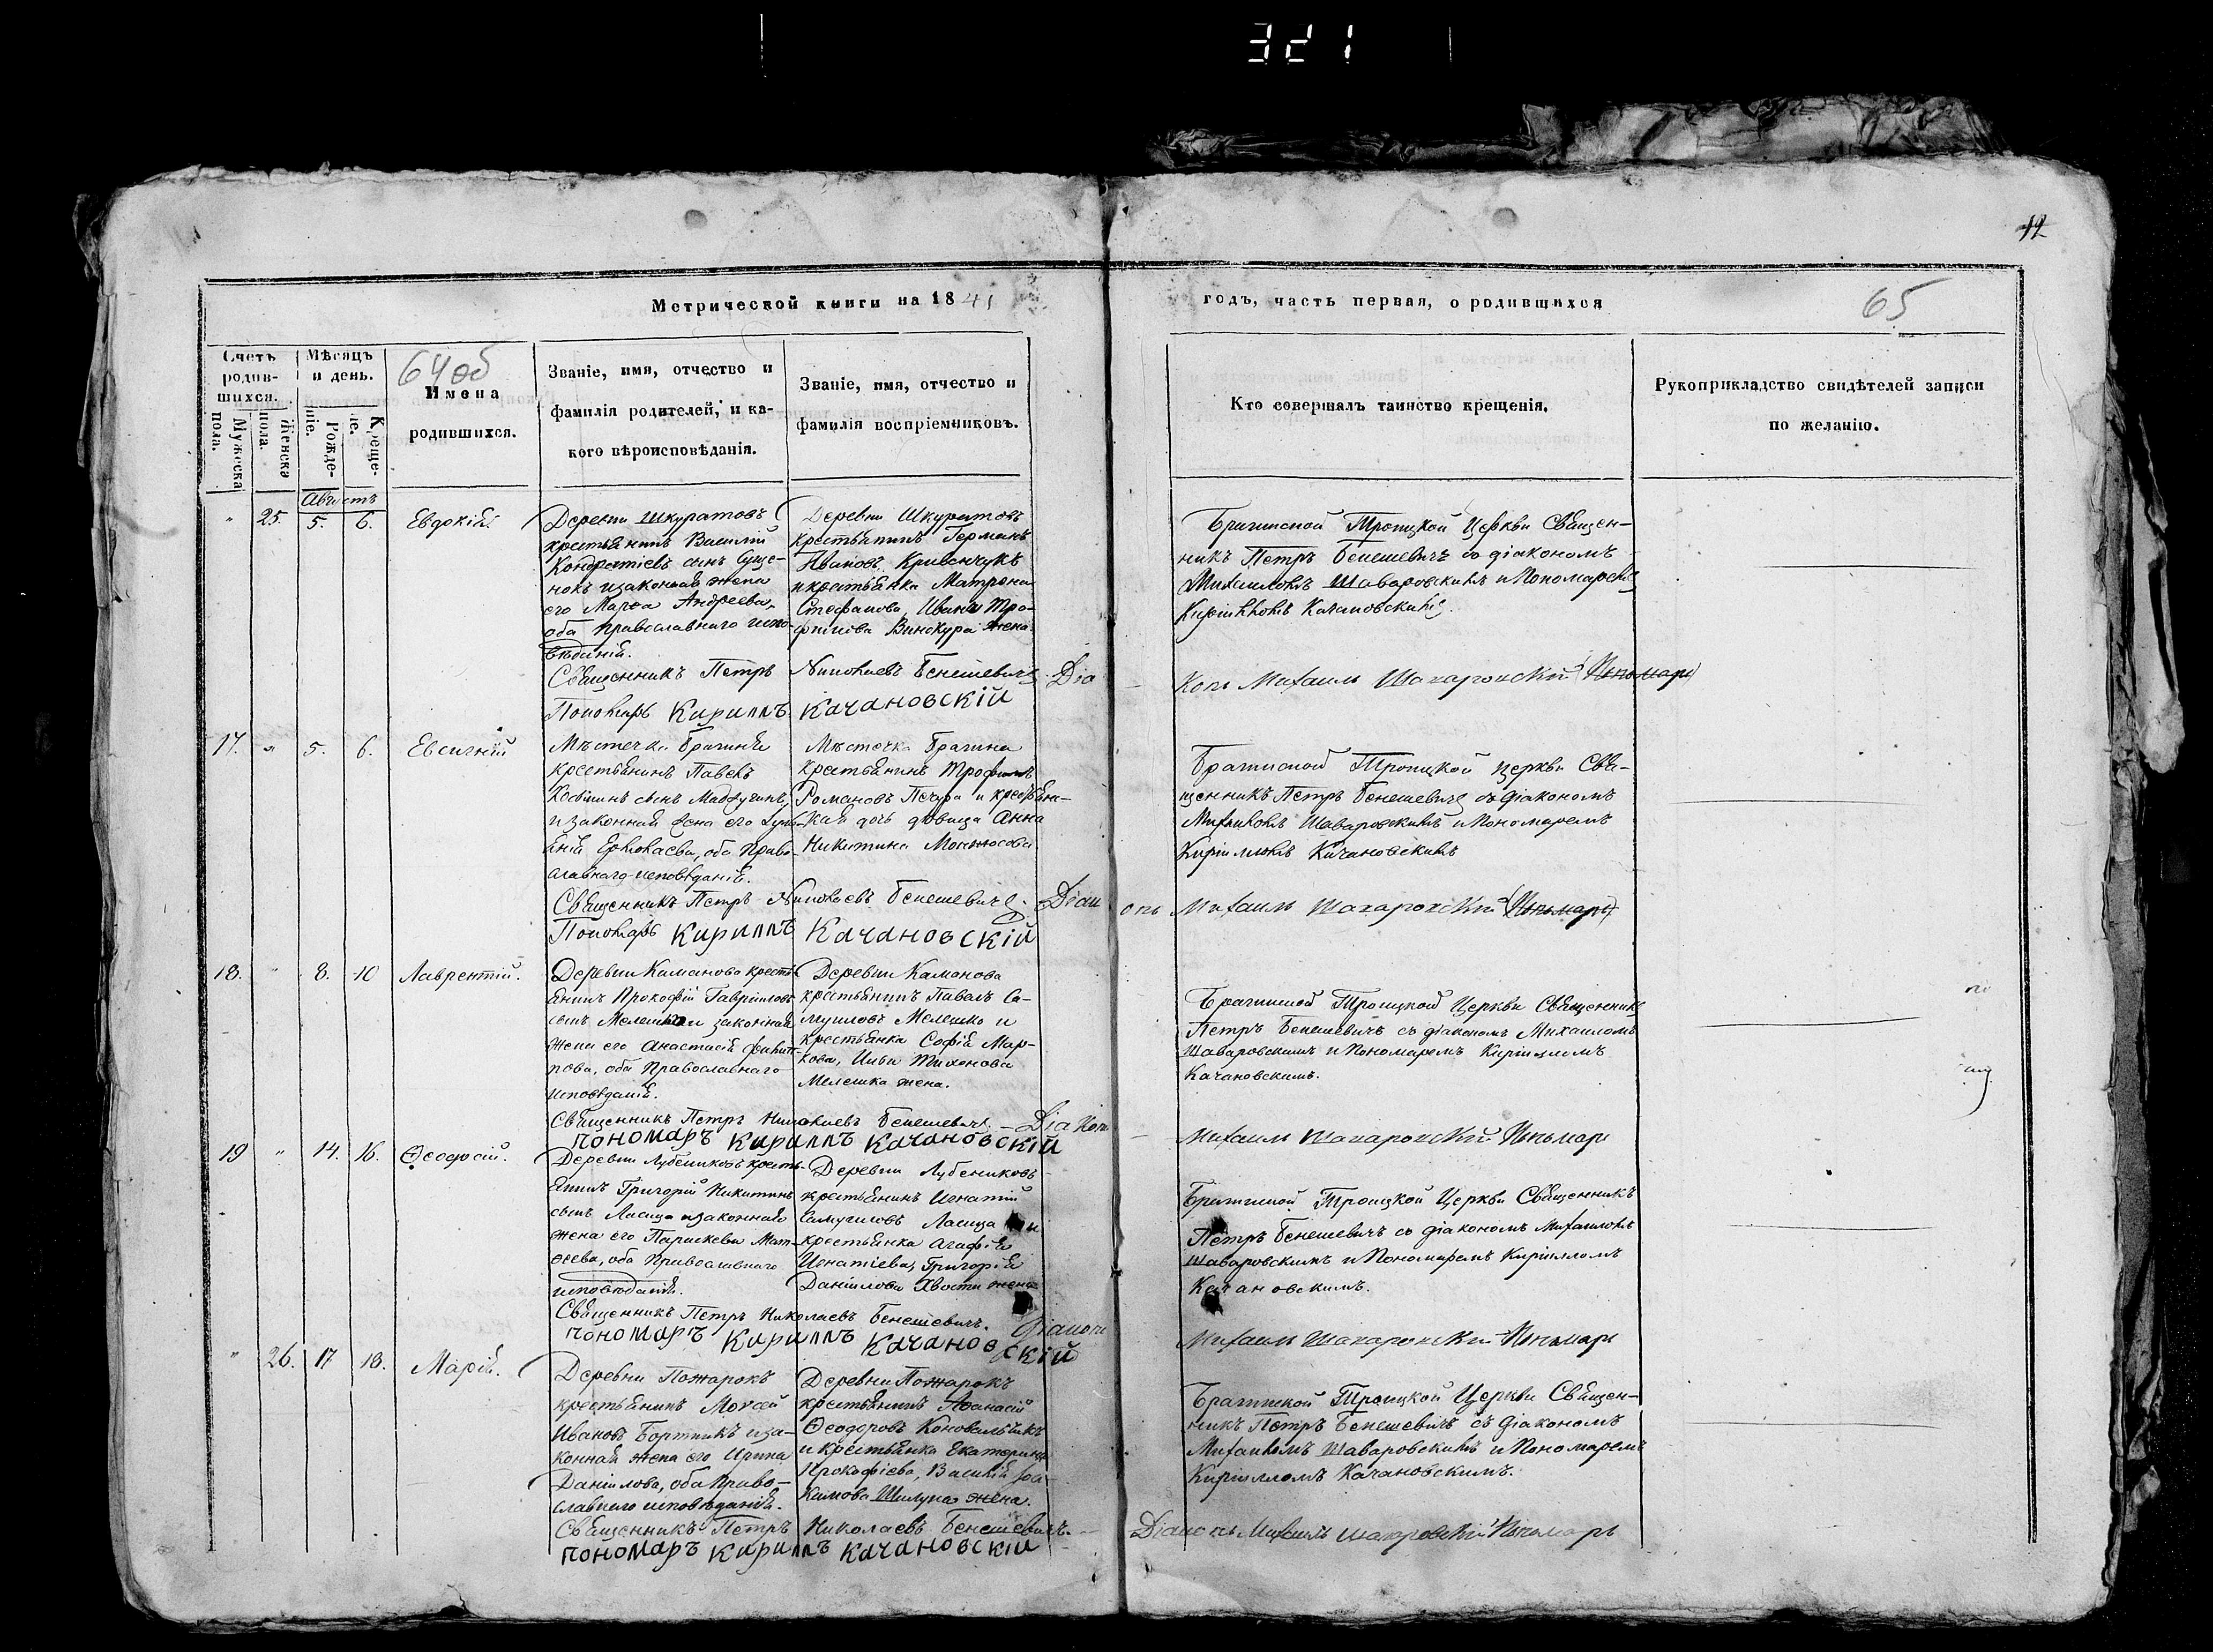 321
12
Метрической книги на 1841
годъ, часть первая, о родившихся
65
64об
Счетъ родив-шихся.
Мужеска пола.
Женска пола.
Мѣсяцъ и день.
Рожде-ніе.
Креще-ніе.
Имена
родившихся.
Званіе, имя, отчество и
фамилія родителей, и ка-
кого вѣроисповѣданія.
Званіе, имя, отчество и
фамилія воспріемниковъ.
Кто совершалъ таинство крещенія.
Рукоприкладство свидѣтелей записи
по желанію.
Августъ
" 25. 5. 6. Евдокія
Деревни Шкуратовъ
крестьянинъ Василій
Кондратіевъ сынъ Суще-
нокъ и законная жена
его Марѳа Андреева,
оба православнаго испо-
вѣданія.
Деревни Шкуратовъ
крестьянинъ Германъ
Ивановъ Кривенчукъ
и крестьянка Матрона
Стефанова, Ивана Тро-
фимова Винокура жена
Брагинской Троицкой Церкви Священ-
никъ Петръ Бенешевичъ со діакономъ
Михаиломъ Шаваровскимъ и Пономаремъ
Кирилломъ Качановскимъ.
Священникъ Петръ Николаевъ Бенешевичъ. Діа
конъ Михаилъ Шаваровскій Пономарь
Пономарь Кириллъ Качановскій
17. " 5. 6. Евсигній
Мѣстечка Брагиня
крестьянинъ Павелъ
сынъ
и законная жена его
Ермолаева, оба Право-
славнаго исповѣданія.
Мѣстечка Брагина
крестьянинъ Трофимъ
Романовъ Печура и крестьян-
ская дочь дѣвица Анна
Никитина
Брагинской Троицкой церкви Свя-
щенникъ Петръ Бенешевичъ съ діакономъ
Михаиломъ Шаваровскимъ и Пономаремъ
Кирилломъ Качановскимъ
Священникъ Петръ Николаевъ Бенешевичъ. Діак
онъ Михаилъ Шаваровскій Пономарь
Пономарь Кириллъ Качановскій
18. " 8. 10 Лаврентій.
Деревни Каманова кресть-
янинъ Прокофій Гавріиловъ
сынъ Мелешко и законная
жена его Анастасія Филип-
пова, оба Православнаго
исповѣданія.
Деревни Каманова
крестьянинъ Павелъ Са-
муиловъ Мелешко и
крестьянка Софія Мар-
кова, Ильи Тихонова
Мелешка жена.
Брагинской Троицкой Церкви Священникъ
Петръ Бенешевичъ съ діакономъ Михаиломъ
Шаваровскимъ и Пономаремъ Кирилломъ
Качановскимъ.
Священникъ Петръ Николаевъ Бенешевичъ – Діаконъ
Михаилъ Шаваровскій Пономарь
пономаръ Кириллъ Качановскій
19 " 14. 16. Ѳеодосій.
Деревни Лубениковъ кресть-
янинъ Григорій Никитинъ
сынъ Ласица и законная
жена его Параскева Мат-
ѳеева, оба Православнаго
исповѣданія.
Деревни Лубениковъ
крестьянинъ Игнатій
Самуиловъ Ласица и
крестьянка Агафія
Игнатіева, Григорія
Даніилова Хвоста жена
Брагинской Троицкой Церкви Священникъ
Петръ Бенешевичъ со діакономъ Михаиломъ
Шаваровскимъ и Пономаремъ Кирилломъ
Качановскимъ.
Священникъ Петръ Николаевъ Бенешевичъ. Діаконъ
Михаилъ Шаваровскій Пономарь
пономаръ Кириллъ Качановскій
" 26. 17 18. Марія.
Деревни Пожарокъ
крестьянинъ Моѵсей
Ивановъ Бортникъ и за-
конная жена его Ирина
Даніилова, оба Право-
славнаго исповѣданія.
Деревни Пожарокъ
крестьянинъ Аѳанасій
Ѳеодоровъ Коновальчикъ
и крестьянка Екатерина
Прокофіева, Василія Іоа-
кимова Шилуна жена.
Брагинской Троицкой Церкви Священ-
никъ Петръ Бенешевичъ съ діакономъ
Михаиломъ Шаваровскимъ и Пономаремъ
Кирилломъ Качановскимъ.
Священникъ Петръ Николаевъ Бенешевичъ. –
Діаконъ Михаилъ Шаваровскій Пономарь
пономаръ Кириллъ Качановскій